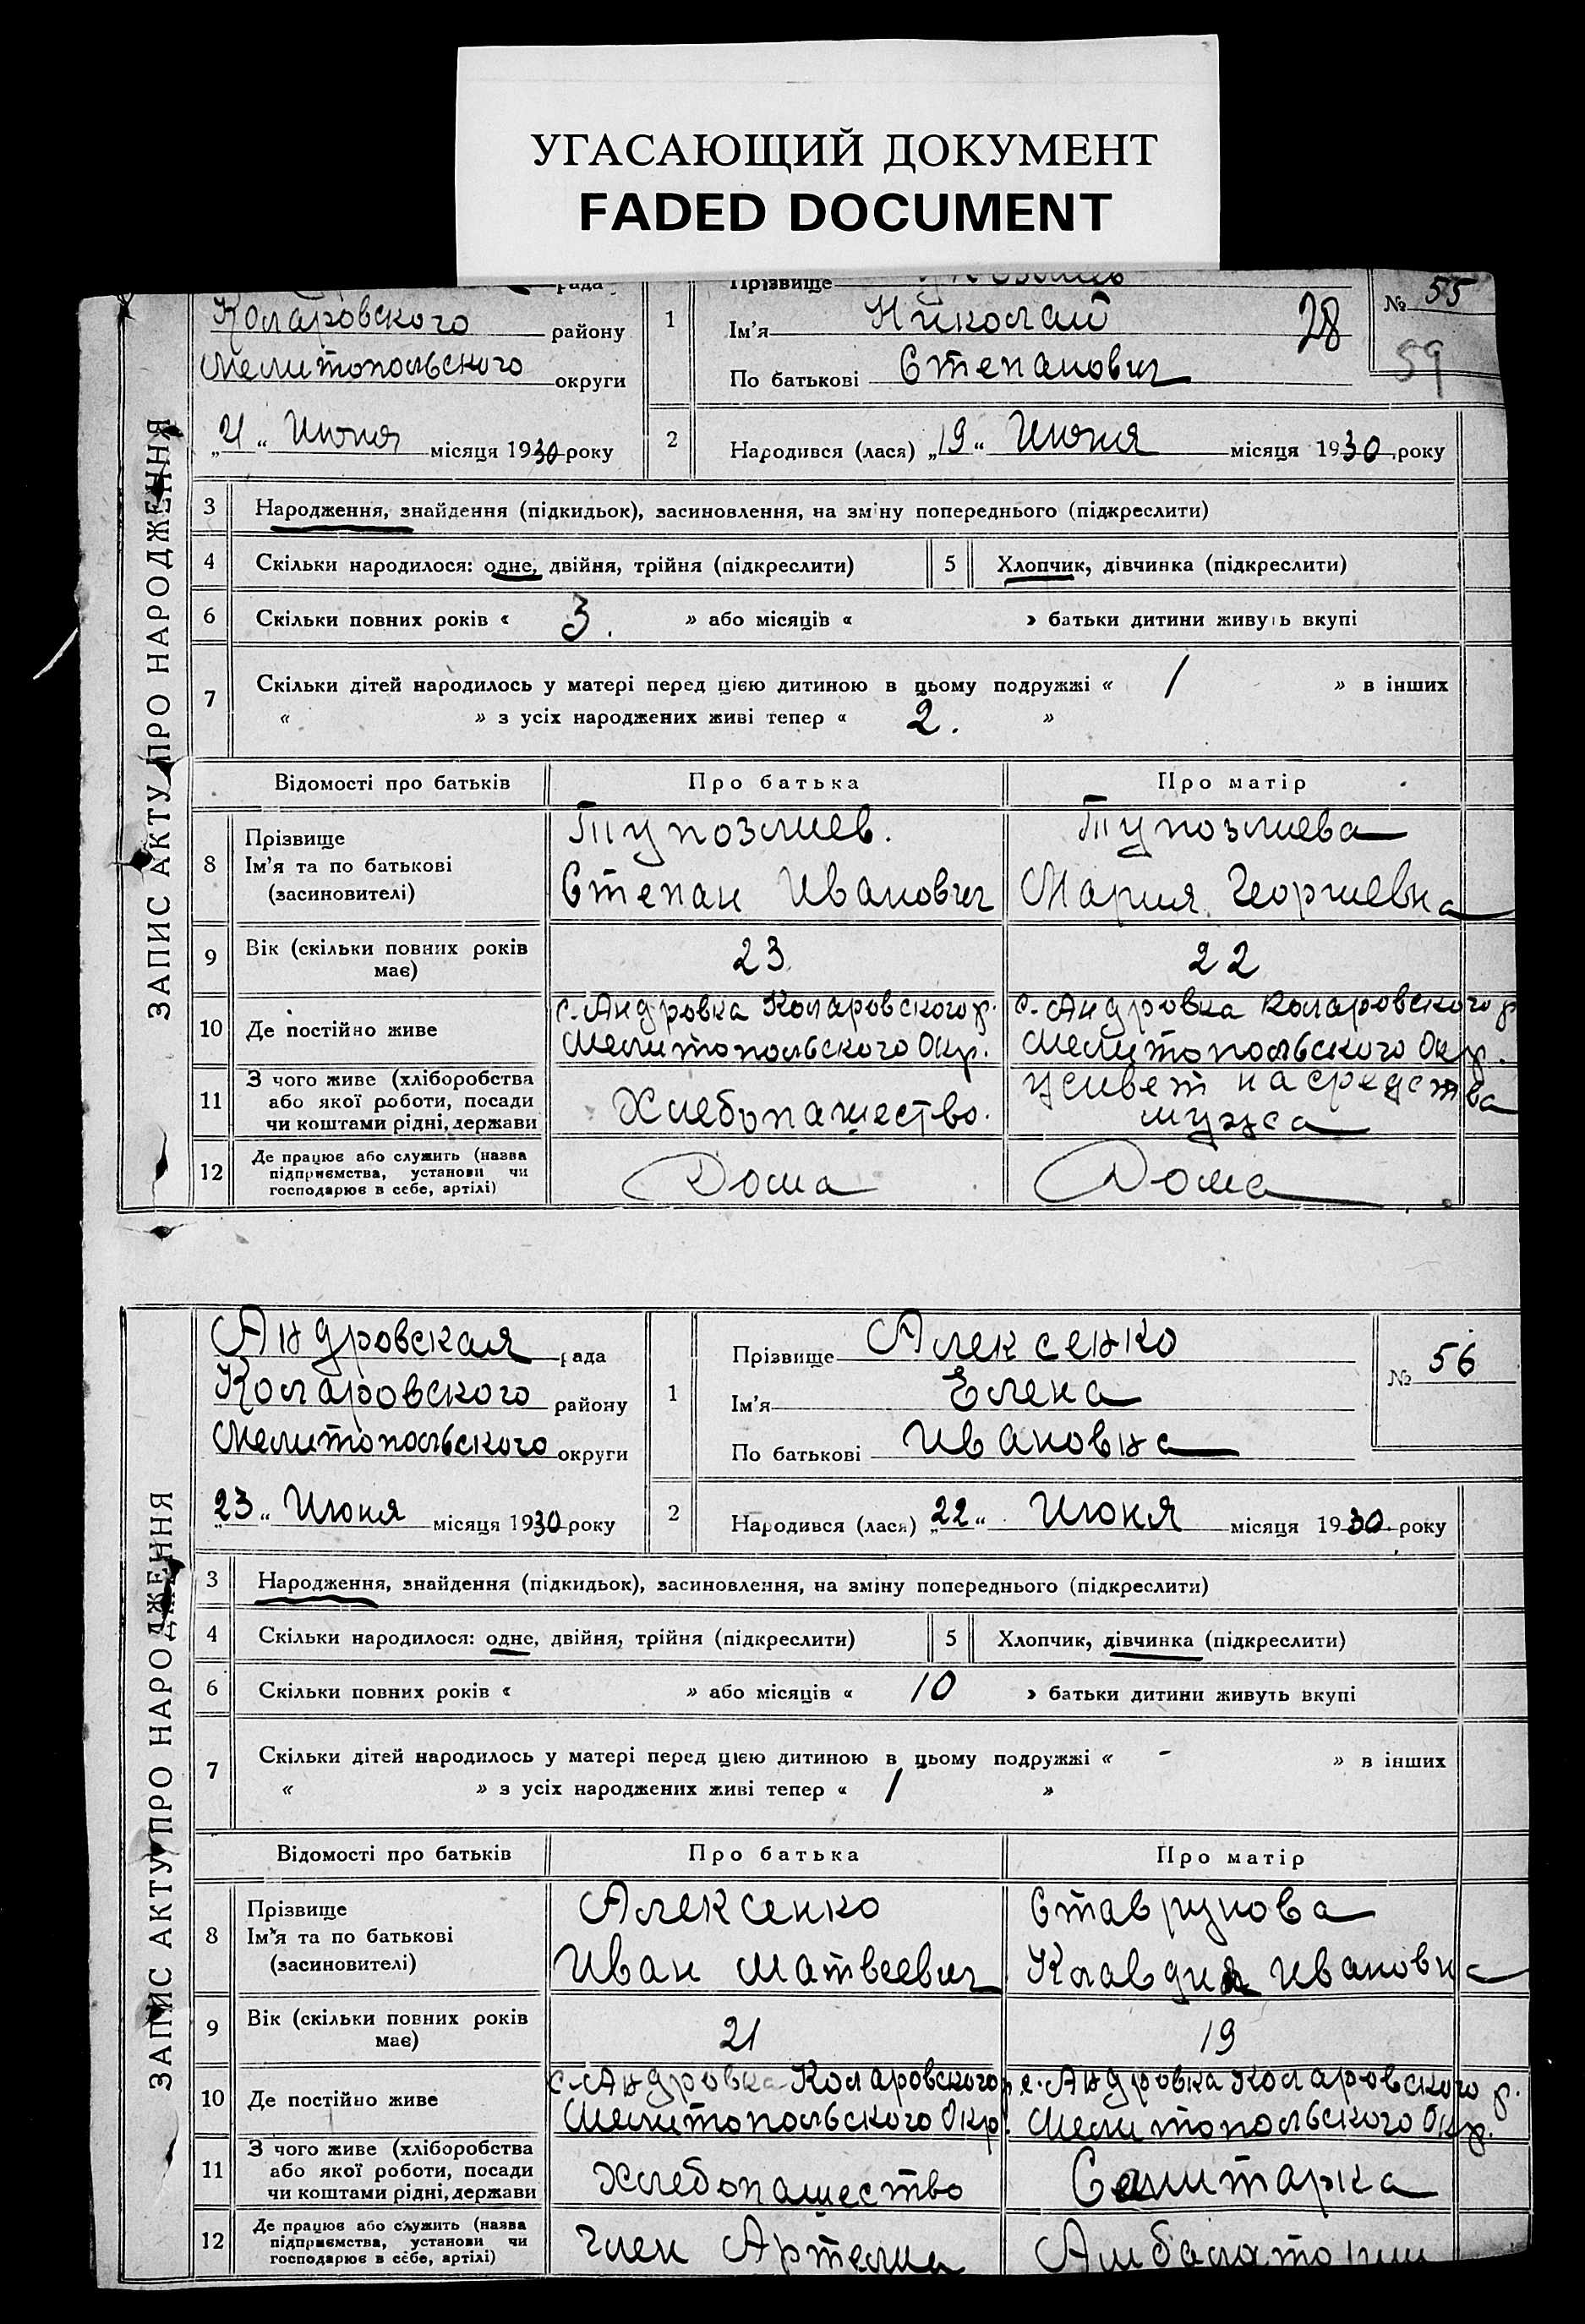 УГАСАЮЩИЙ ДОКУМЕНТ
FADED DOCUMENT
ЗАПИС АКТУ ПРО НАРОДЖЕННЯ
рада
Коларовского району
Мелитопольского округи
„21“ Июня місяця 1930 року
1 Прізвище
Ім'я Николай 28
По батькові Степанович
№ 55
59
2 Народився (лася) „19“ Июня місяця 1930 року
3 Народження, знайдення (підкидьок), засиновлення, на зміну попереднього (підкреслити)
4 Скільки народилося: одне, двійня, трійня (підкреслити) 5 Хлопчик, дівчинка (підкреслити)
6 Скільки повних років « 3. » або місяців « » батьки дитини живуть вкупі
7 Скільки дітей народилось у матері перед цією дитиною в цьому подружжі « 1 » в інших
« » з усіх народжених живі тепер « 2. »
Відомості про батьків Про батька Про матір
8 Прізвище Тупозлиев. Тупозлиева
Ім'я та по батькові
(засновителі) Степан Иванович Мария Георгиевна
9 Вік (скільки повних років має) 23 22
10 Де постійно живе с. Андровка Коларовского р. с. Андровка Коларовского р
Мелитопольского Окр. Мелитопольского Окр.
11 З чого живе (хліборобства живет на средства
або якої роботи, посади Хлебопашество. мужа
чи коштами рідні, держави
12 Де працює або служить (назва
підприємства, установи чи Дома Дома
господарює в себе, артілі)
ЗАПИС АКТУ ПРО НАРОДЖЕННЯ
Андровская рада
Коларовского району
Мелитопольского округи
„23“ Июня місяця 1930 року
1 Прізвище Алексенко
Ім'я Елена
По батькові Ивановна
№ 56
2 Народився (лася) „22“ Июня місяця 1930 року
3 Народження, знайдення (підкидьок), засиновлення, на зміну попереднього (підкреслити)
4 Скільки народилося: одне, двійня, трійня (підкреслити) 5 Хлопчик, дівчинка (підкреслити)
6 Скільки повних років « » або місяців « 10 » батьки дитини живуть вкупі
7 Скільки дітей народилось у матері перед цією дитиною в цьому подружжі « - » в інших
« » з усіх народжених живі тепер « 1 »
Відомості про батьків Про батька Про матір
8 Прізвище Алексенко Ставрунова
Ім'я та по батькові
(засиновителі) Иван Матвеевич Клавдия Ивановна
9 Вік (скільки повних років має) 21 19
10 Де постійно живе с. Андровка Коларовского р. с. Андровка Коларовского р.
Мелитопольского Окр. Мелитопольского Окр.
11 З чого живе (хліборобства
або якої роботи, посади Хлебопашество Санитарка
чи коштами рідні, держави
12 Де працює або служить (назва
підприємства, установи чи Член Артели
господарює в себе, артілі)